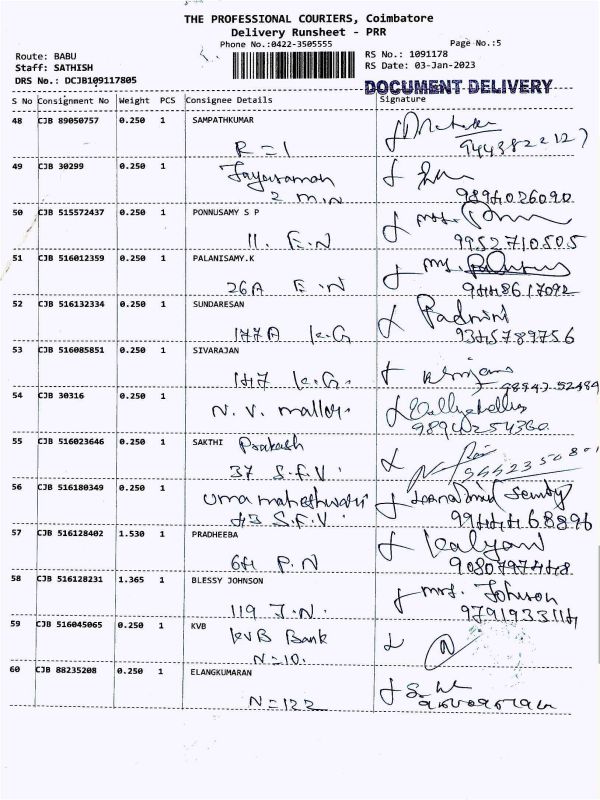 THE PROFESSIONAL COURIERS, Coimbatore
Delivery Runsheet - PRR
Phone No.:0422-3505555 Page No.:5
Route: BABU RS No.: 1091178
Staff: SATHISH RS Date: 03-Jan-2023
DRS No.: DCJB109117805 DOCUMENT DELIVERY
S No Consignment No Weight PCS Consignee Details Signature
48 CJB 89050757 0.250 1 SAMPATHKUMAR
R = 1
49 CJB 30299 0.250 1 Jayaraman
2 M.N 9894026090
50 CJB 515572437 0.250 1 PONNUSAMY S P
11. E.N 9952710505
51 CJB 516012359 0.250 1 PALANISAMY.K Mrs.
26A E.N 9448617092
52 CJB 516132334 0.250 1 SUNDARESAN Padmini
177A K.G 9345789756
53 CJB 516085851 0.250 1 SIVARAJAN
147 K.G.
54 CJB 30316 0.250 1 N. V.
55 CJB 516023646 0.250 1 SAKTHI Prakash
37 S.F.V.
56 CJB 516180349 0.250 1 Uma maheshwari
43 S.F.V. 9944468896
57 CJB 516128402 1.530 1 PRADHEEBA Kalyani
64 P.N
58 CJB 516128231 1.365 1 BLESSY JOHNSON Mrs. Johnson
119 J.N.
59 CJB 516045065 0.250 1 KVB
KVB Bank
N=10.
60 CJB 88235208 0.250 1 ELANGKUMARAN
N=122